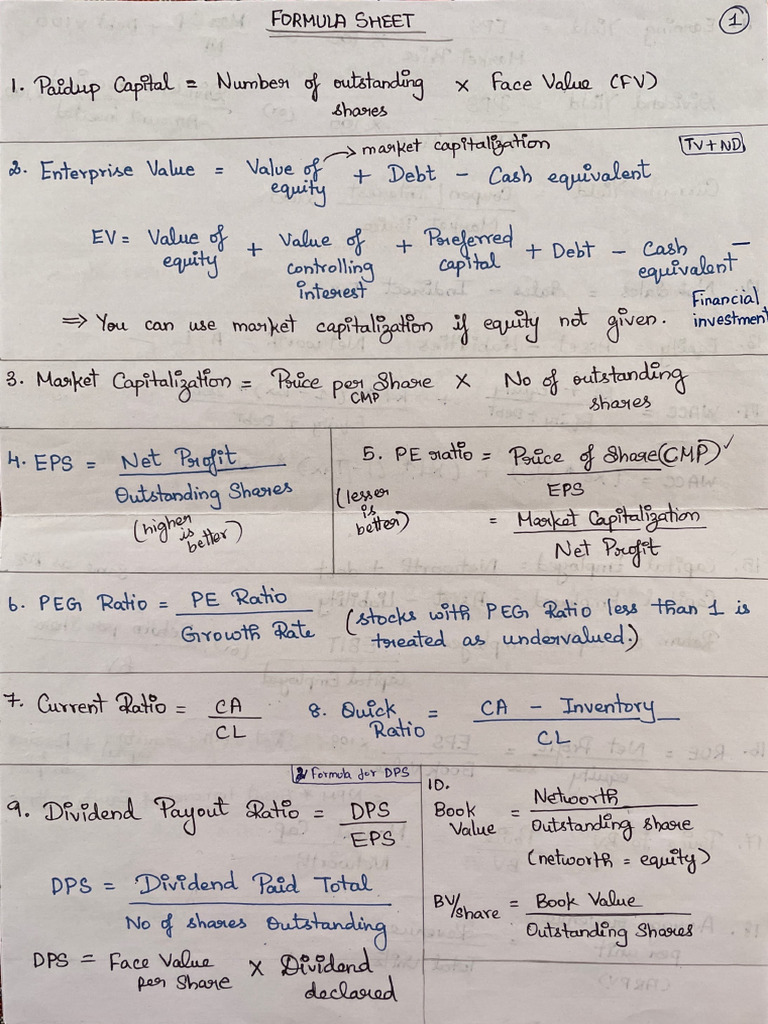 FORMULA SHEET
1
1. Paidup Capital = Number of outstanding shares × Face Value (FV)
2. Enterprise Value = Value of equity + Debt - Cash equivalent
→ market capitalization
TV+ND
EV = Value of equity + Value of controlling interest + Preferred capital + Debt - Cash equivalent - Financial investment
⇒ You can use market capitalization if equity not given.
3. Market Capitalization = Price per Share × No of outstanding shares
CMP
4. EPS = Net Profit / Outstanding Shares
(higher is better)
5. PE ratio = Price of Share (CMP) ✓ / EPS
(lesser is better)
= Market Capitalization / Net Profit
6. PEG Ratio = PE Ratio / Growth Rate (stocks with PEG Ratio less than 1 is treated as undervalued.)
7. Current Ratio = CA / CL
8. Quick Ratio = CA - Inventory / CL
2 Formula for DPS
9. Dividend Payout Ratio = DPS / EPS
DPS = Dividend Paid Total / No of shares Outstanding
DPS = Face Value per Share × Dividend declared
10.
Book Value = Networth / Outstanding share
(networth = equity)
BV/share = Book Value / Outstanding Shares